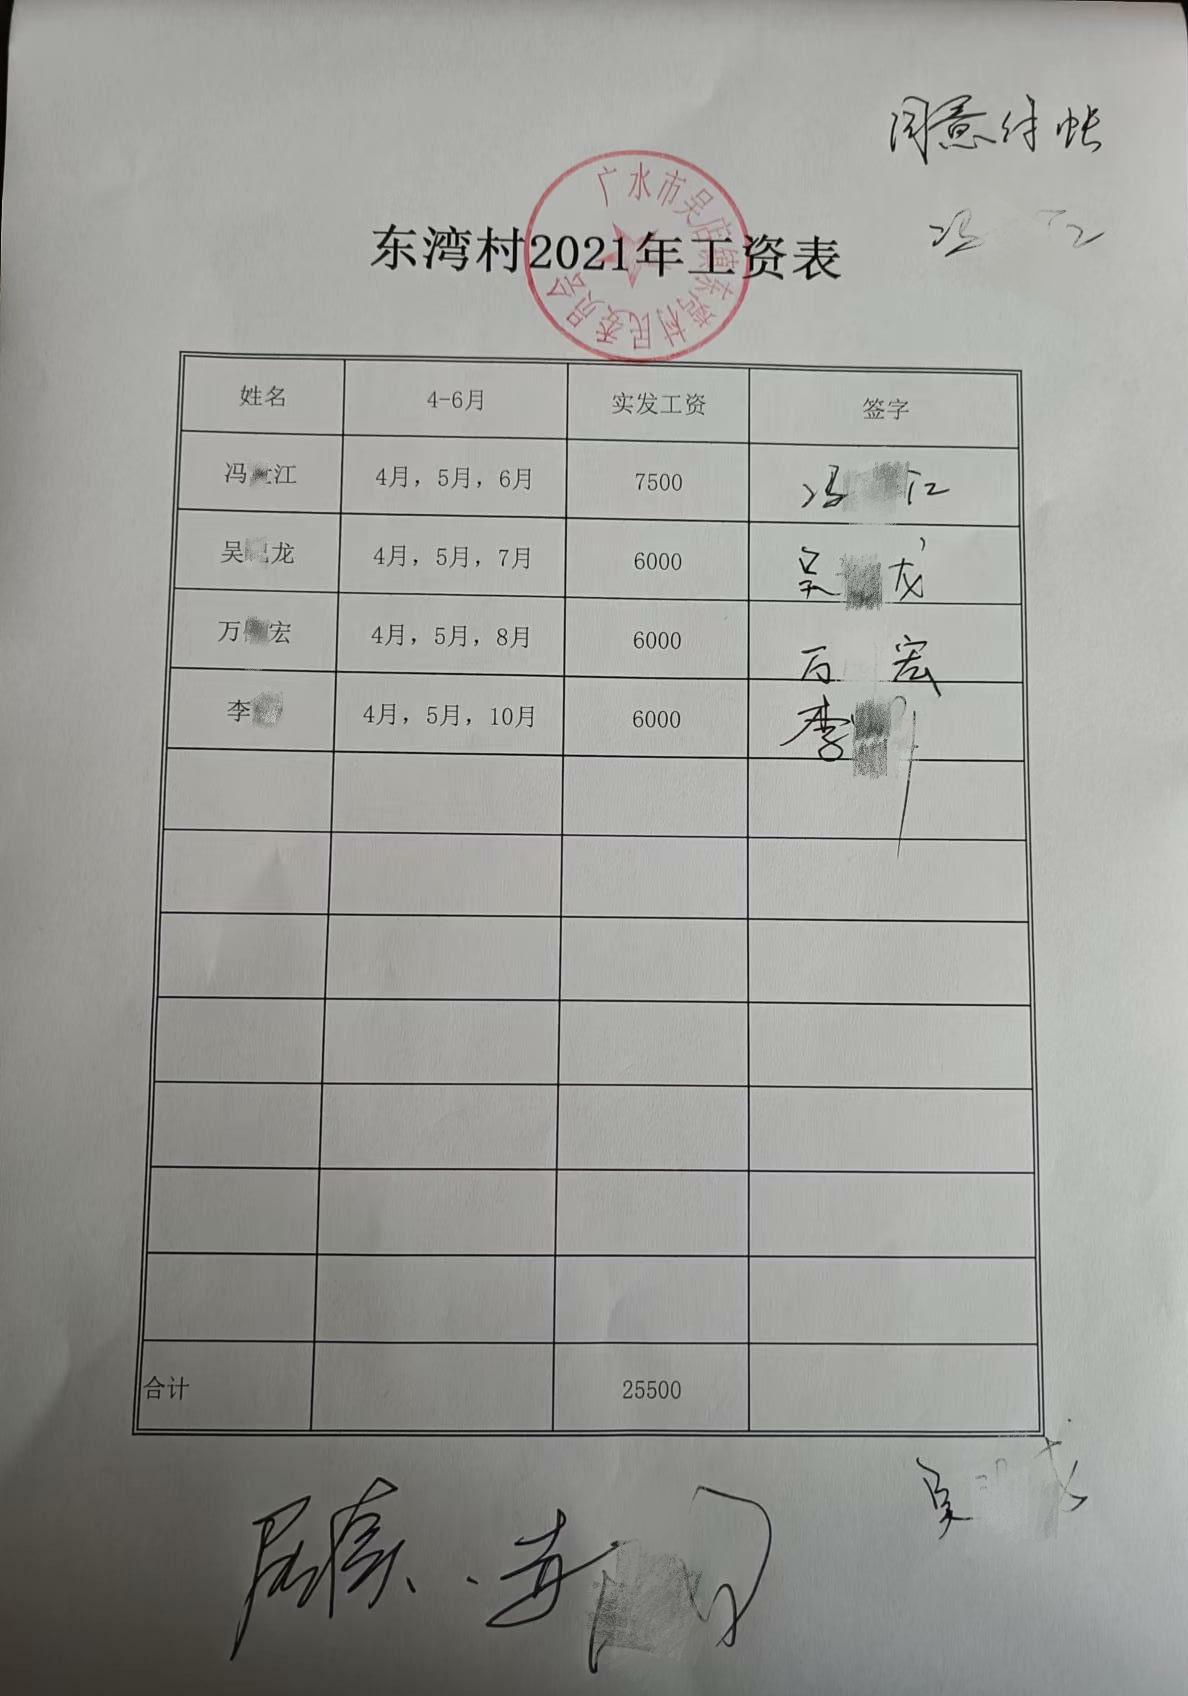 同意付帐
冯 江
广水市吴店镇东湾村民委员会
东湾村2021年工资表
姓名 4-6月 实发工资 签字
冯 江 4月，5月，6月 7500 冯 江
吴 龙 4月，5月，7月 6000 吴 龙
万 宏 4月，5月，8月 6000 万 宏
李 4月，5月，10月 6000 李
合计 25500
吴